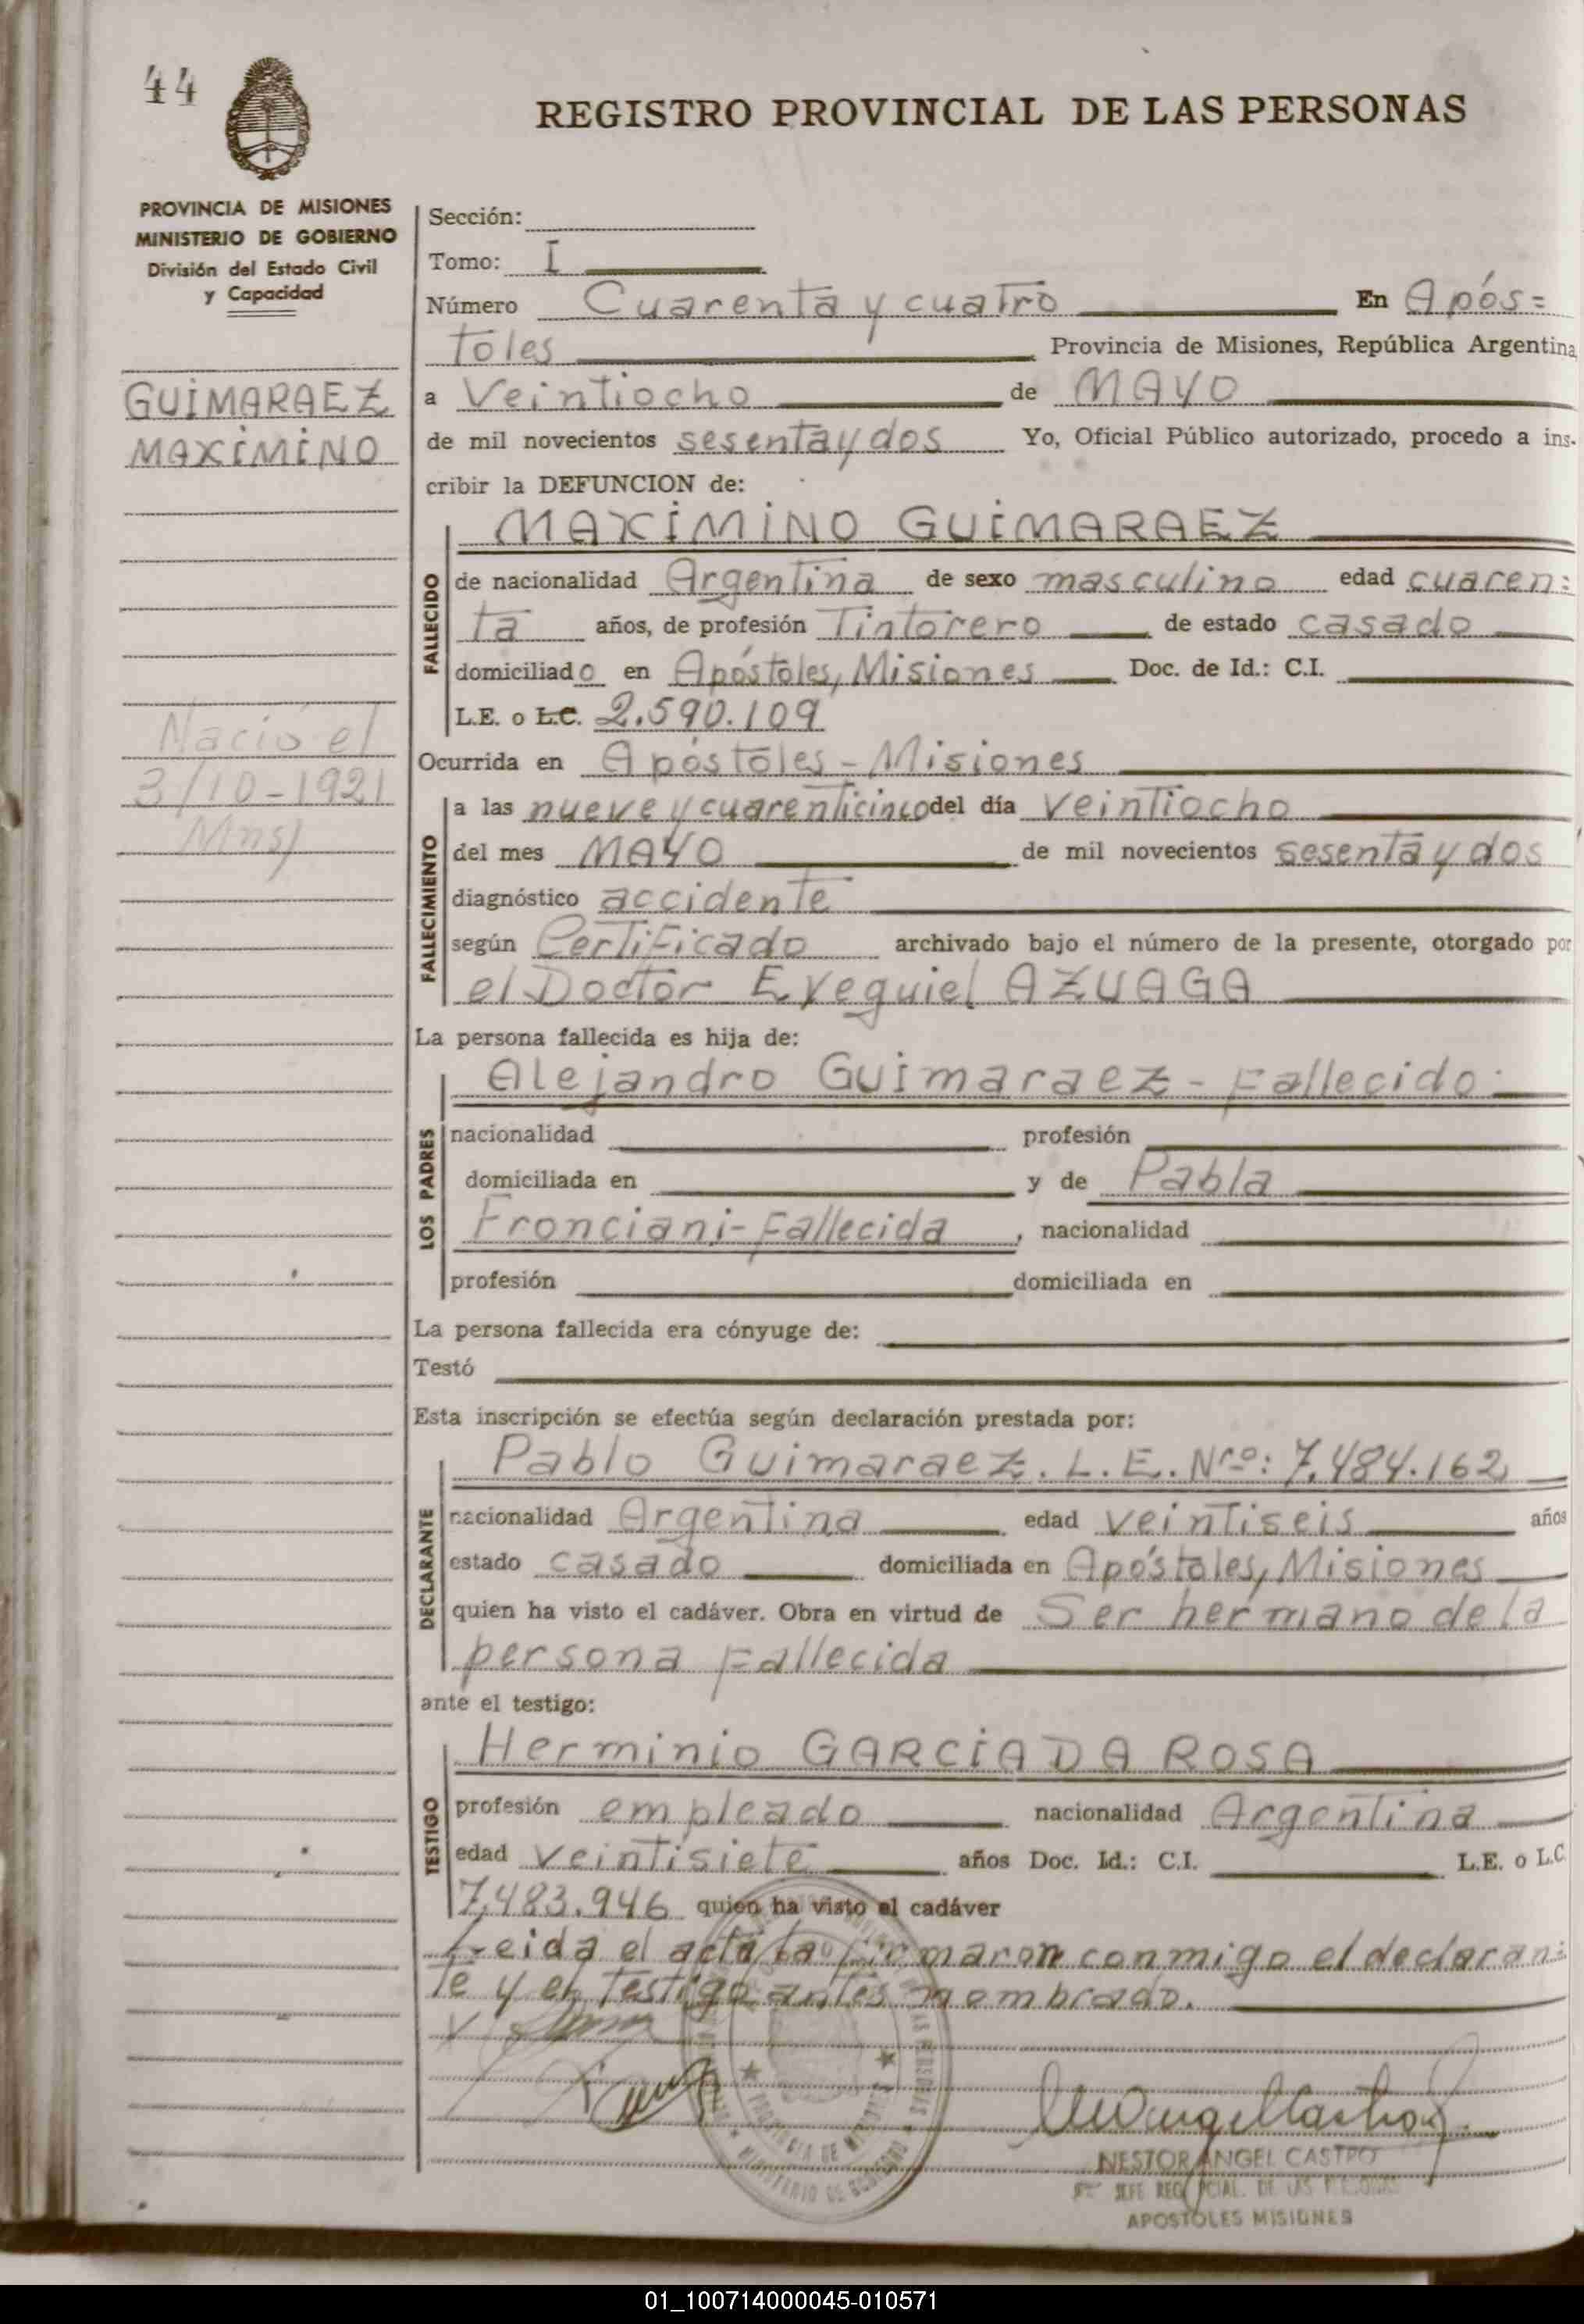 44
REGISTRO PROVINCIAL DE LAS PERSONAS
PROVINCIA DE MISIONES
MINISTERIO DE GOBIERNO
División del Estado Civil
y Capacidad
GUIMARAEZ
MAXIMINO
Nació el
3/10-1921
Sección:
Tomo: I
Número Cuarenta y cuatro En Após=
toles Provincia de Misiones, República Argentina
a Veintiocho de MAYO
de mil novecientos sesenta y dos Yo, Oficial Público autorizado, procedo a ins-
cribir la DEFUNCION de:
MAXIMINO GUIMARAEZ
FALLECIDO
de nacionalidad Argentina de sexo masculino edad cuaren=
ta años, de profesión Tintorero de estado casado
domiciliado en Apóstoles, Misiones Doc. de Id.: C.I.
L.E. o L.C. 2.590.109
Ocurrida en Apóstoles - Misiones
FALLECIMIENTO
a las nueve y cuarenticinco del día veintiocho
del mes MAYO de mil novecientos sesenta y dos
diagnóstico accidente
según Certificado archivado bajo el número de la presente, otorgado por
el Doctor Exequiel AZUAGA
La persona fallecida es hija de:
Alejandro Guimaraez - Fallecido
LOS PADRES
nacionalidad profesión
domiciliada en y de Pabla
Fronciani - Fallecida, nacionalidad
profesión domiciliada en
La persona fallecida era cónyuge de:
Testó
Esta inscripción se efectúa según declaración prestada por:
Pablo Guimaraez. L.E. Nro: 7.484.162
DECLARANTE
nacionalidad Argentina edad veintiseis años
estado casado domiciliada en Apóstoles, Misiones
quien ha visto el cadáver. Obra en virtud de Ser hermano de la
persona Fallecida
ante el testigo:
Herminio GARCIA DA ROSA
TESTIGO
profesión empleado nacionalidad Argentina
edad veintisiete años Doc. Id.: C.I. L.E. o L.C.
7.483.946 quien ha visto el cadáver
Leida el acta la firmaron conmigo el declaran=
te y el testigo antes nombrado.
NESTOR ANGEL CASTRO
APOSTOLES MISIONES
01_100714000045-010571